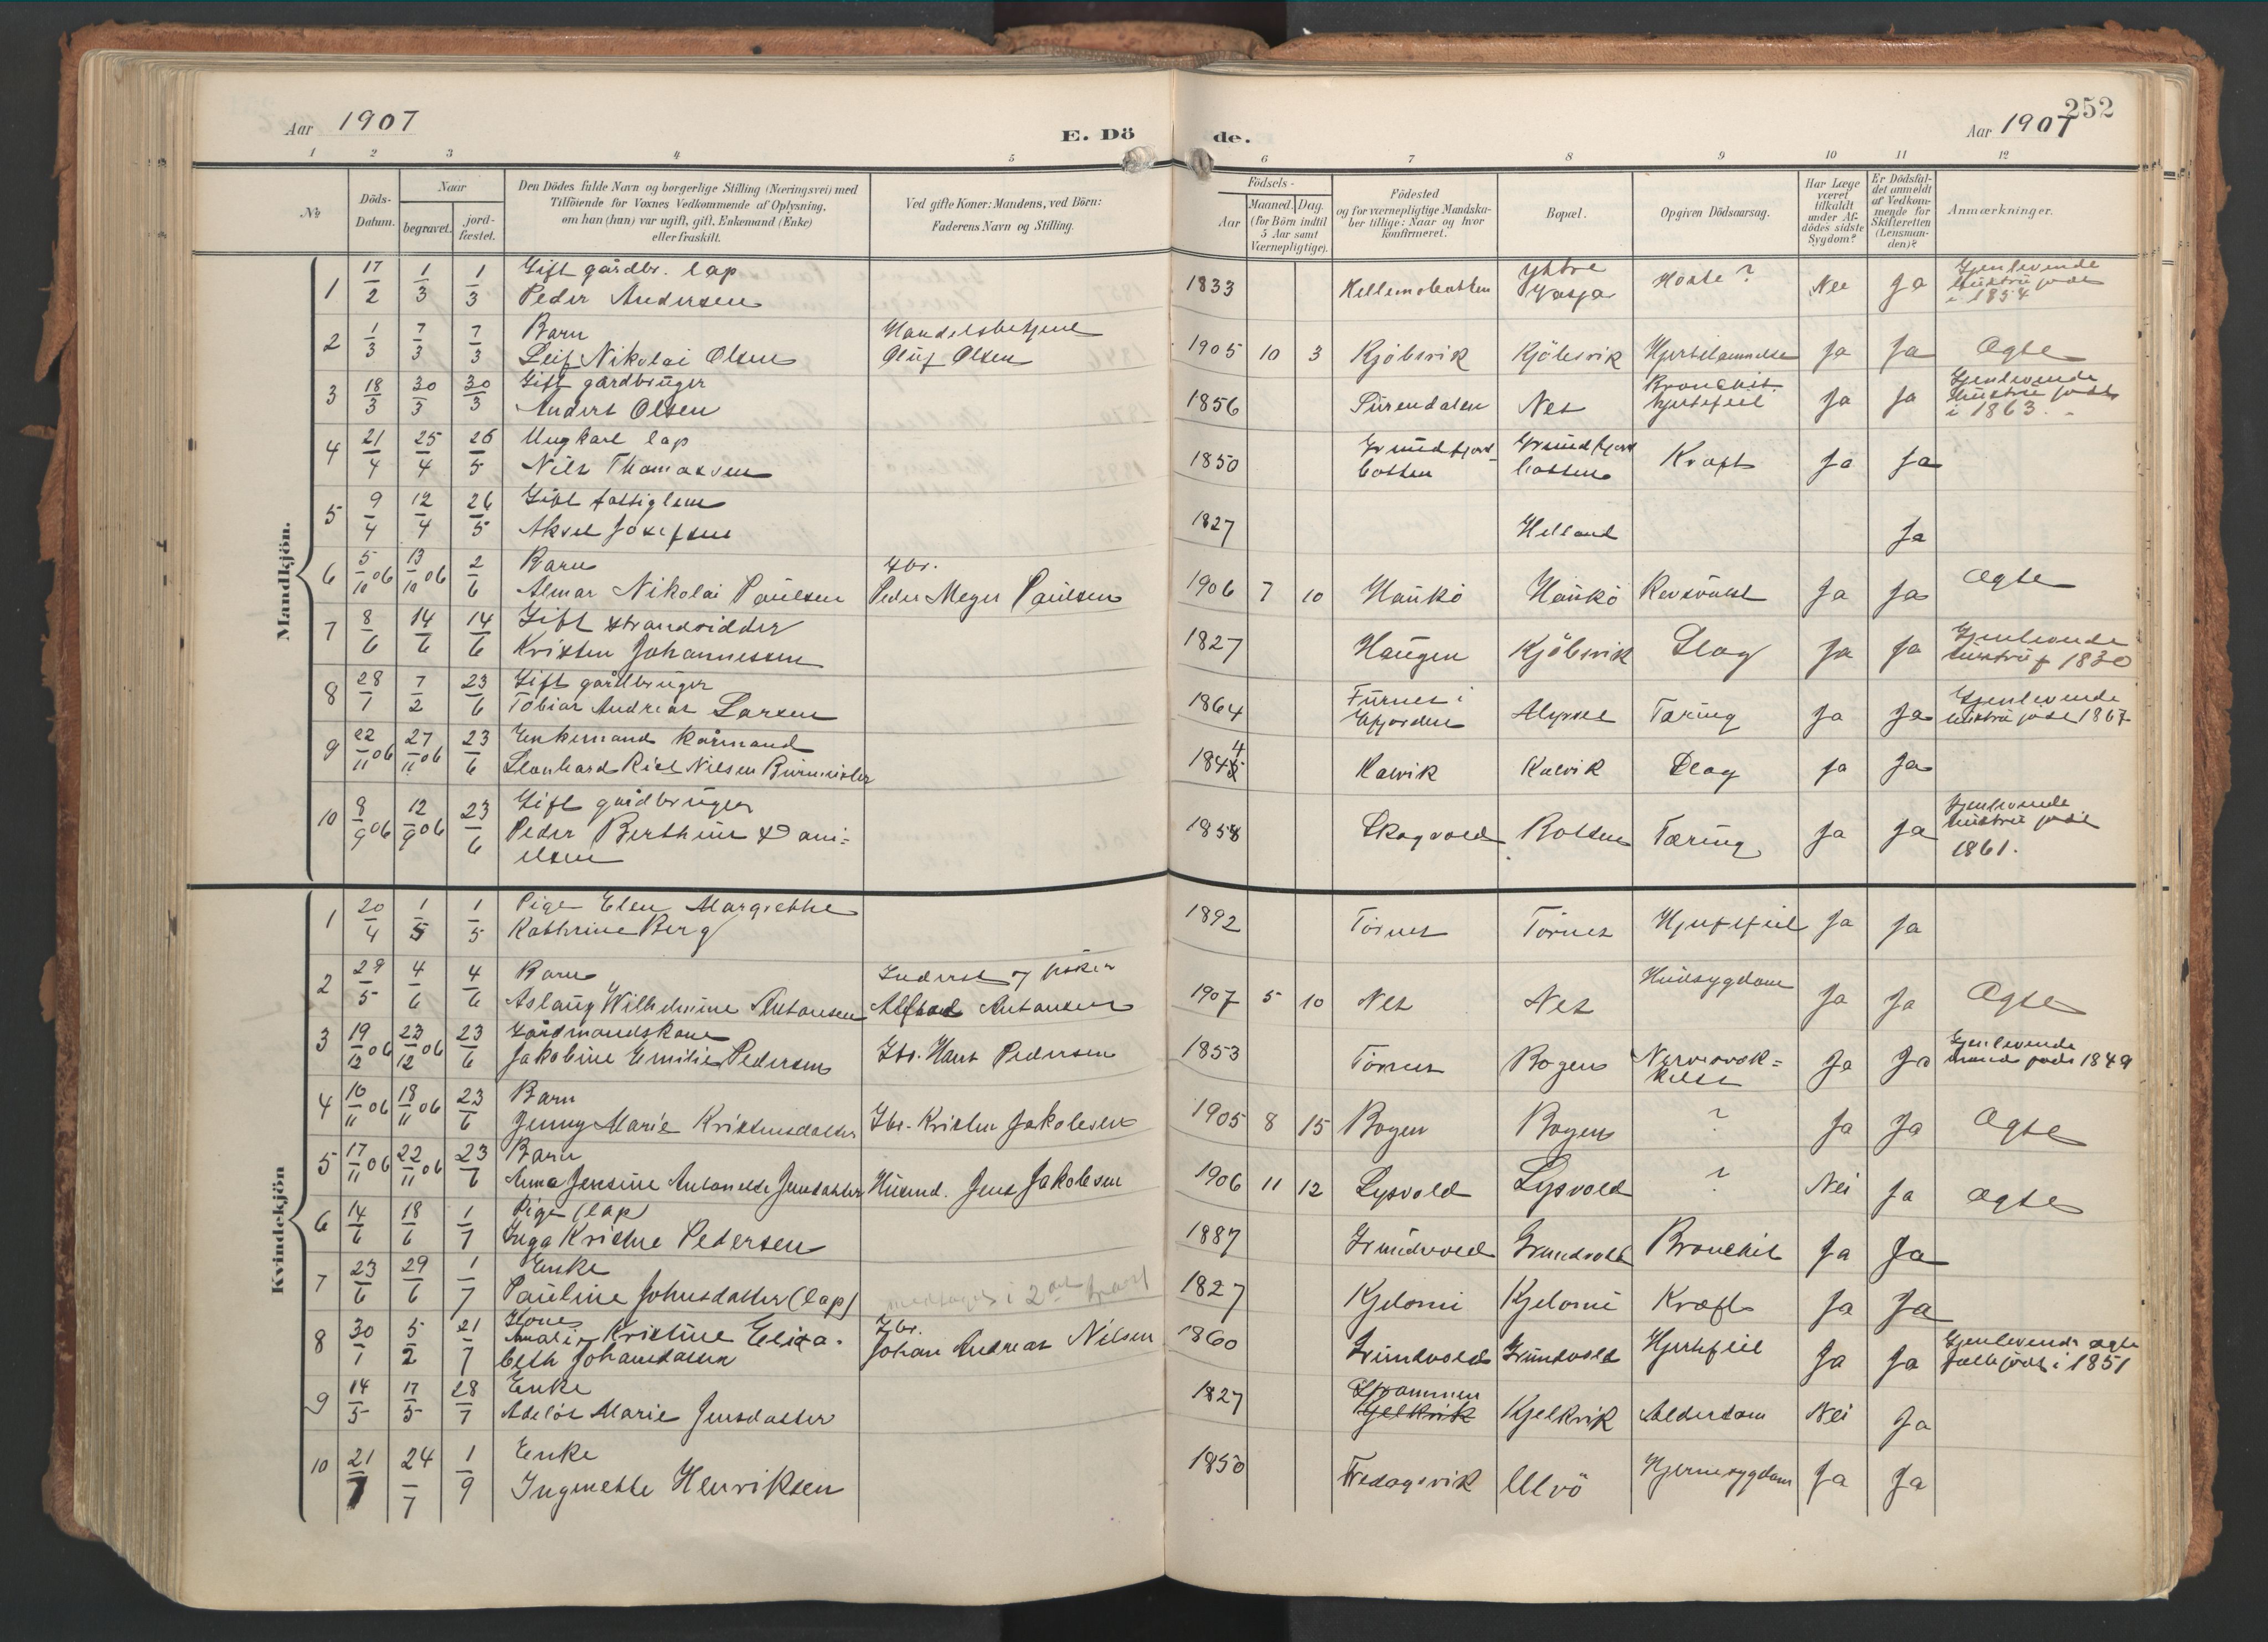 Aar 1907
E. Dö de.
252
Aar 1907
1 2 3 4 5 6 7 8 9 10 11 12
№
Döds-Datum.
Naar
begravet.
jord-fæstet.
Den Dödes fulde Navn og borgerlige Stilling (Næringsvei) med
Tilföiende for Voxnes Vedkommende af Oplysning,
om han (hun) var ugift, gift, Enkemand (Enke)
eller fraskilt.
Ved gifte Koner: Mandens, ved Börn:
Faderens Navn og Stilling.
Födsels-
Aar
Maaned. Dag.
(for Börn indtil
5 Aar samt
Værnepligtige).
Födested
og for værnepligtige Mandska-
ber tillige: Naar og hvor
konfirmeret.
Bopæl.
Opgiven Dödsaarsag.
Har Læge
været
tilkaldt
under Af-
dödes sidste
Sygdom?
Er Dödsfal-
det anmeldt
af Vedkom-
mende for
Skifteretten
(Lensman-
den)?
Anmærkninger.
Mandkjön.
1 17/2 1/3 1/3 Gift gårdbr. lap
Peder Andersen 1833 Hellemobotten Yttre Hoste? Nei Ja Gjenlevende
hustru født
i 1854
2 1/3 7/3 7/3 Barn Handelsbetjent
Leif Nikolai Olsen Oluf Olsen 1905 10 3 Kjöbsvik Kjöbsvik Hjertelammelse Ja Ja Ægte
3 18/3 30/3 30/3 Gift gårdbruger
Anders Olsen 1856 Sürendalen Nes Bronchit
hjertefeil Ja Ja Gjenlevende
hustru født
i 1863.
4 21/4 25/4 26/5 Ungkarl lap
Nils Thomassen 1850 Grundfjord
botten Grundfjord
botten Kræft Ja Ja
5 9/4 12/4 26/5 Gift fattiglem
Aksel Josefsen 1827 Helland Ja
6 5/10 06 13/10 06 2/6 Barn Gbr.
Almar Nikolai Paulsen Peder Meyer Paulsen 1906 7 10 Haukö Haukö Ja Ja Ægte
7 8/6 14/6 14/6 Gift strandsidder
Kristen Johannessen 1827 Haugen Kjöbsvik Slag Ja Ja Gjenlevende
hustru f 1830
8 28/1 7/2 23/6 Gift gårdbruger
Tobias Andreas Larsen 1864 Furnes i
Efjorden Tæring Ja Ja Gjenlevende
hustru født 1867
9 22/11 06 27/11 06 23/6 Enkemand kårmand
Leonhard Nilsen 1844 Kalvik Kalvik Slag Ja Ja
10 8/9 06 12/9 06 23/6 Gift gårdbruger
Peder Berthin Dani=
elsen 1858 Skogvold Botten Tæring Ja Ja Gjenlevende
hustru født
1861.
Kvindekjön
1 20/4 1/5 1/5 Pige Elen Margrethe
Kathrine Berg 1892 Tornes Tornes Hjertefeil Ja Ja
2 29/5 4/6 4/6 Barn Inderst og fisker
Aslaug Wilhelmine Antonsen Antonsen 1907 5 10 Nes Nes Hudsygdom Ja Ja Ægte
3 19/12 06 23/12 06 23/6 Gårdmandskone
Jakobine Emilie Pedersen Gbr. Hans Pedersen 1853 Tornes Bogen Nervesvæk=
kelse Ja Ja Gjenlevende
mand født 1849
4 10/11 06 18/11 06 23/6 Barn
Jenny Marie Kristensdatter Gbr. Kristen Jakobsen 1905 8 15 Bogen Bogen ? Ja Ja Ægte
5 17/11 06 22/11 06 23/6 Barn
Anna Jensine Antonette Jensdatter Husmd. Jens Jakobsen 1906 11 12 Lysvold Lysvold ? Nei Ja Ægte
6 14/6 18/6 1/7 Pige (lap)
Inga Kristine Pedersen 1887 Grundvold Grundvold Bronchit Ja Ja
7 23/6 29/6 1/7 Enke
Pauline Johnsdatter (lap) 1827 Kjelomi Kjelomi Kræft Ja Ja
8 30/1 5/2 21/7 Kone Gbr.
Amalie Kristine Elisa-
beth Johansdatter Johan Andreas Nilsen 1860 Grundvold Grundvold Hjertefeil Ja Ja Gjenlevende ægte
fælle født i 1851
9 14/5 17/5 28/7 Enke
Adelös Marie Jensdatter 1827 Strømmen
Kjelkvik Kjelkvik Alderdom Nei Ja
10 21/7 24/7 1/9 Enke
Ingmette Henriksen 1850 Fredagsvik Ulvö Hjernesygdom Ja Ja